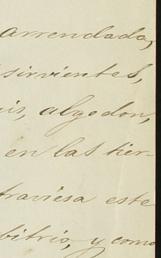 arrendada,
sirvientes,
is, algodon,
en las tier-
traviesa este
bitrio, y como